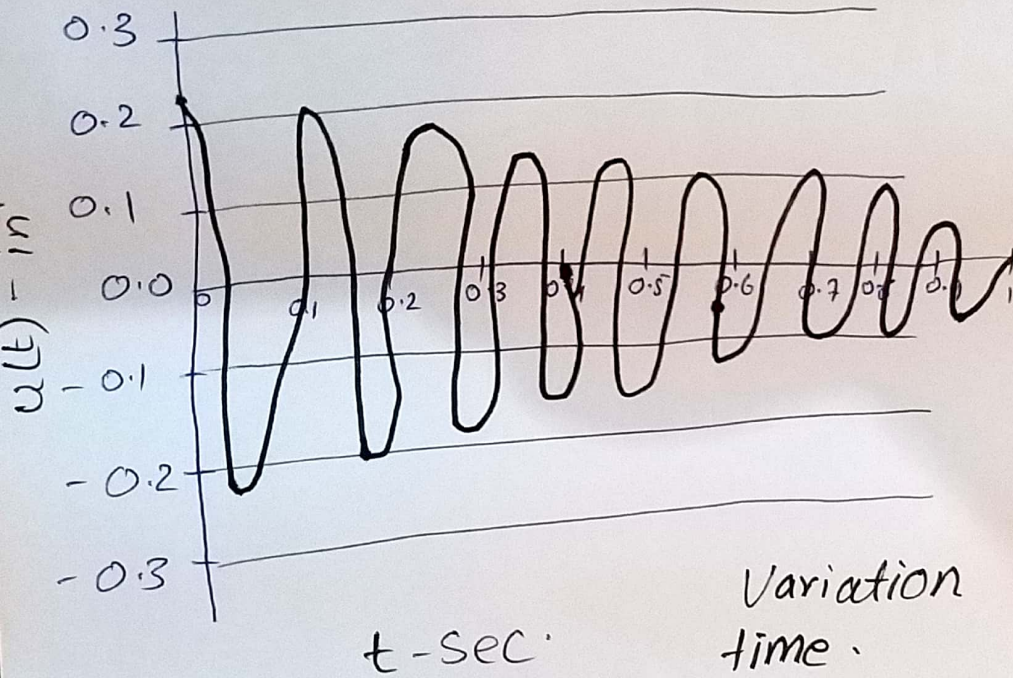 0.3
0.2
0.1
0.0
- 0.1
- 0.2
- 0.3
u(t) - in
0 0.1 0.2 0.3 0.4 0.5 0.6 0.7
t-sec.
Variation
time.